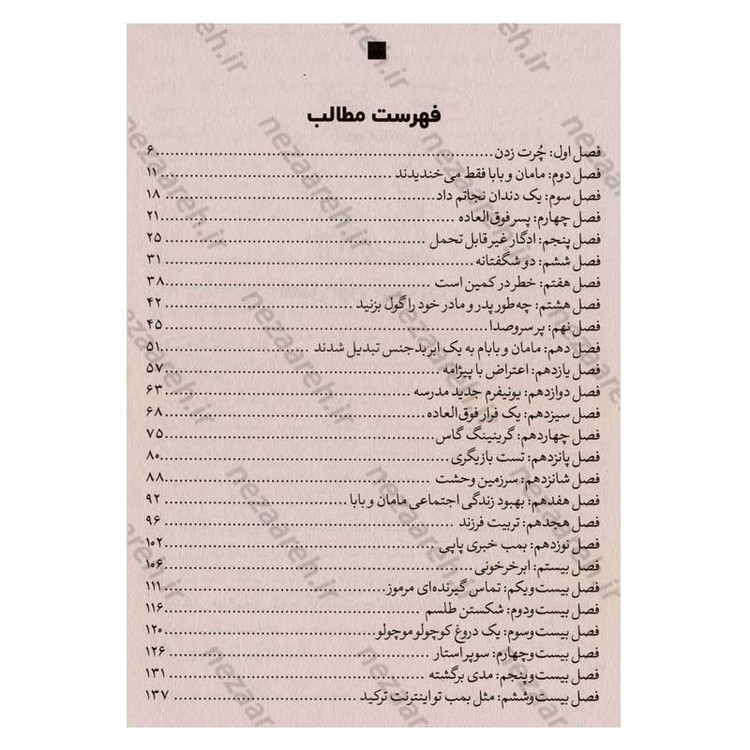 فهرست مطالب
فصل اول: چُرت زدن ........ ۶
فصل دوم: مامان و بابا فقط می‌خندیدند ........ ۱۱
فصل سوم: یک دندان نجاتم داد ........ ۱۸
فصل چهارم: پسر فوق‌العاده ........ ۲۱
فصل پنجم: ادگار غیر قابل تحمل ........ ۲۵
فصل ششم: دو شگفتانه ........ ۳۱
فصل هفتم: خطر در کمین است ........ ۳۸
فصل هشتم: چه‌طور پدر و مادر خود را گول بزنید ........ ۴۲
فصل نهم: پر سروصدا ........ ۴۵
فصل دهم: مامان و بابام به یک ابربدجنس تبدیل شدند ........ ۵۱
فصل یازدهم: اعتراض با پیژامه ........ ۵۷
فصل دوازدهم: یونیفرم جدید مدرسه ........ ۶۳
فصل سیزدهم: یک فرار فوق‌العاده ........ ۶۸
فصل چهاردهم: گرینینگ گاس ........ ۷۵
فصل پانزدهم: تست بازیگری ........ ۸۰
فصل شانزدهم: سرزمین وحشت ........ ۸۸
فصل هفدهم: بهبود زندگی اجتماعی مامان و بابا ........ ۹۲
فصل هجدهم: تربیت فرزند ........ ۹۶
فصل نوزدهم: بمب خبری پاپی ........ ۱۰۲
فصل بیستم: ابرخرخونی ........ ۱۰۶
فصل بیست‌ویکم: تماس گیرنده‌ای مرموز ........ ۱۱۱
فصل بیست‌ودوم: شکستن طلسم ........ ۱۱۶
فصل بیست‌وسوم: یک دروغ کوچولو موچولو ........ ۱۲۰
فصل بیست‌وچهارم: سوپر استار ........ ۱۲۶
فصل بیست‌وپنجم: مدی برگشته ........ ۱۳۱
فصل بیست‌وششم: مثل بمب تو اینترنت ترکید ........ ۱۳۷
nezaareh.ir